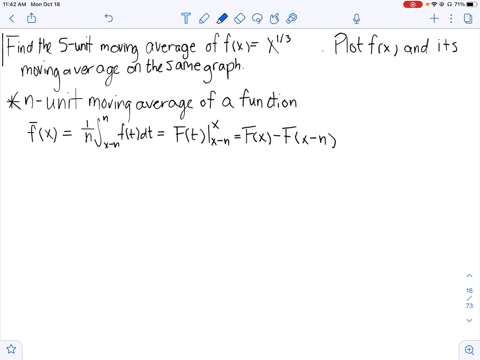 11:42 AM Mon Oct 18
71%
Find the 5-unit moving average of f(x) = x^{1/3} . Plot f(x) and its
moving average on the same graph.
* n-unit moving average of a function
f̄(x) = 1/n ∫_{x-n}^{n} f(t)dt = F(t)|_{x-n}^{x} = F(x) - F(x-n)
16
/
73